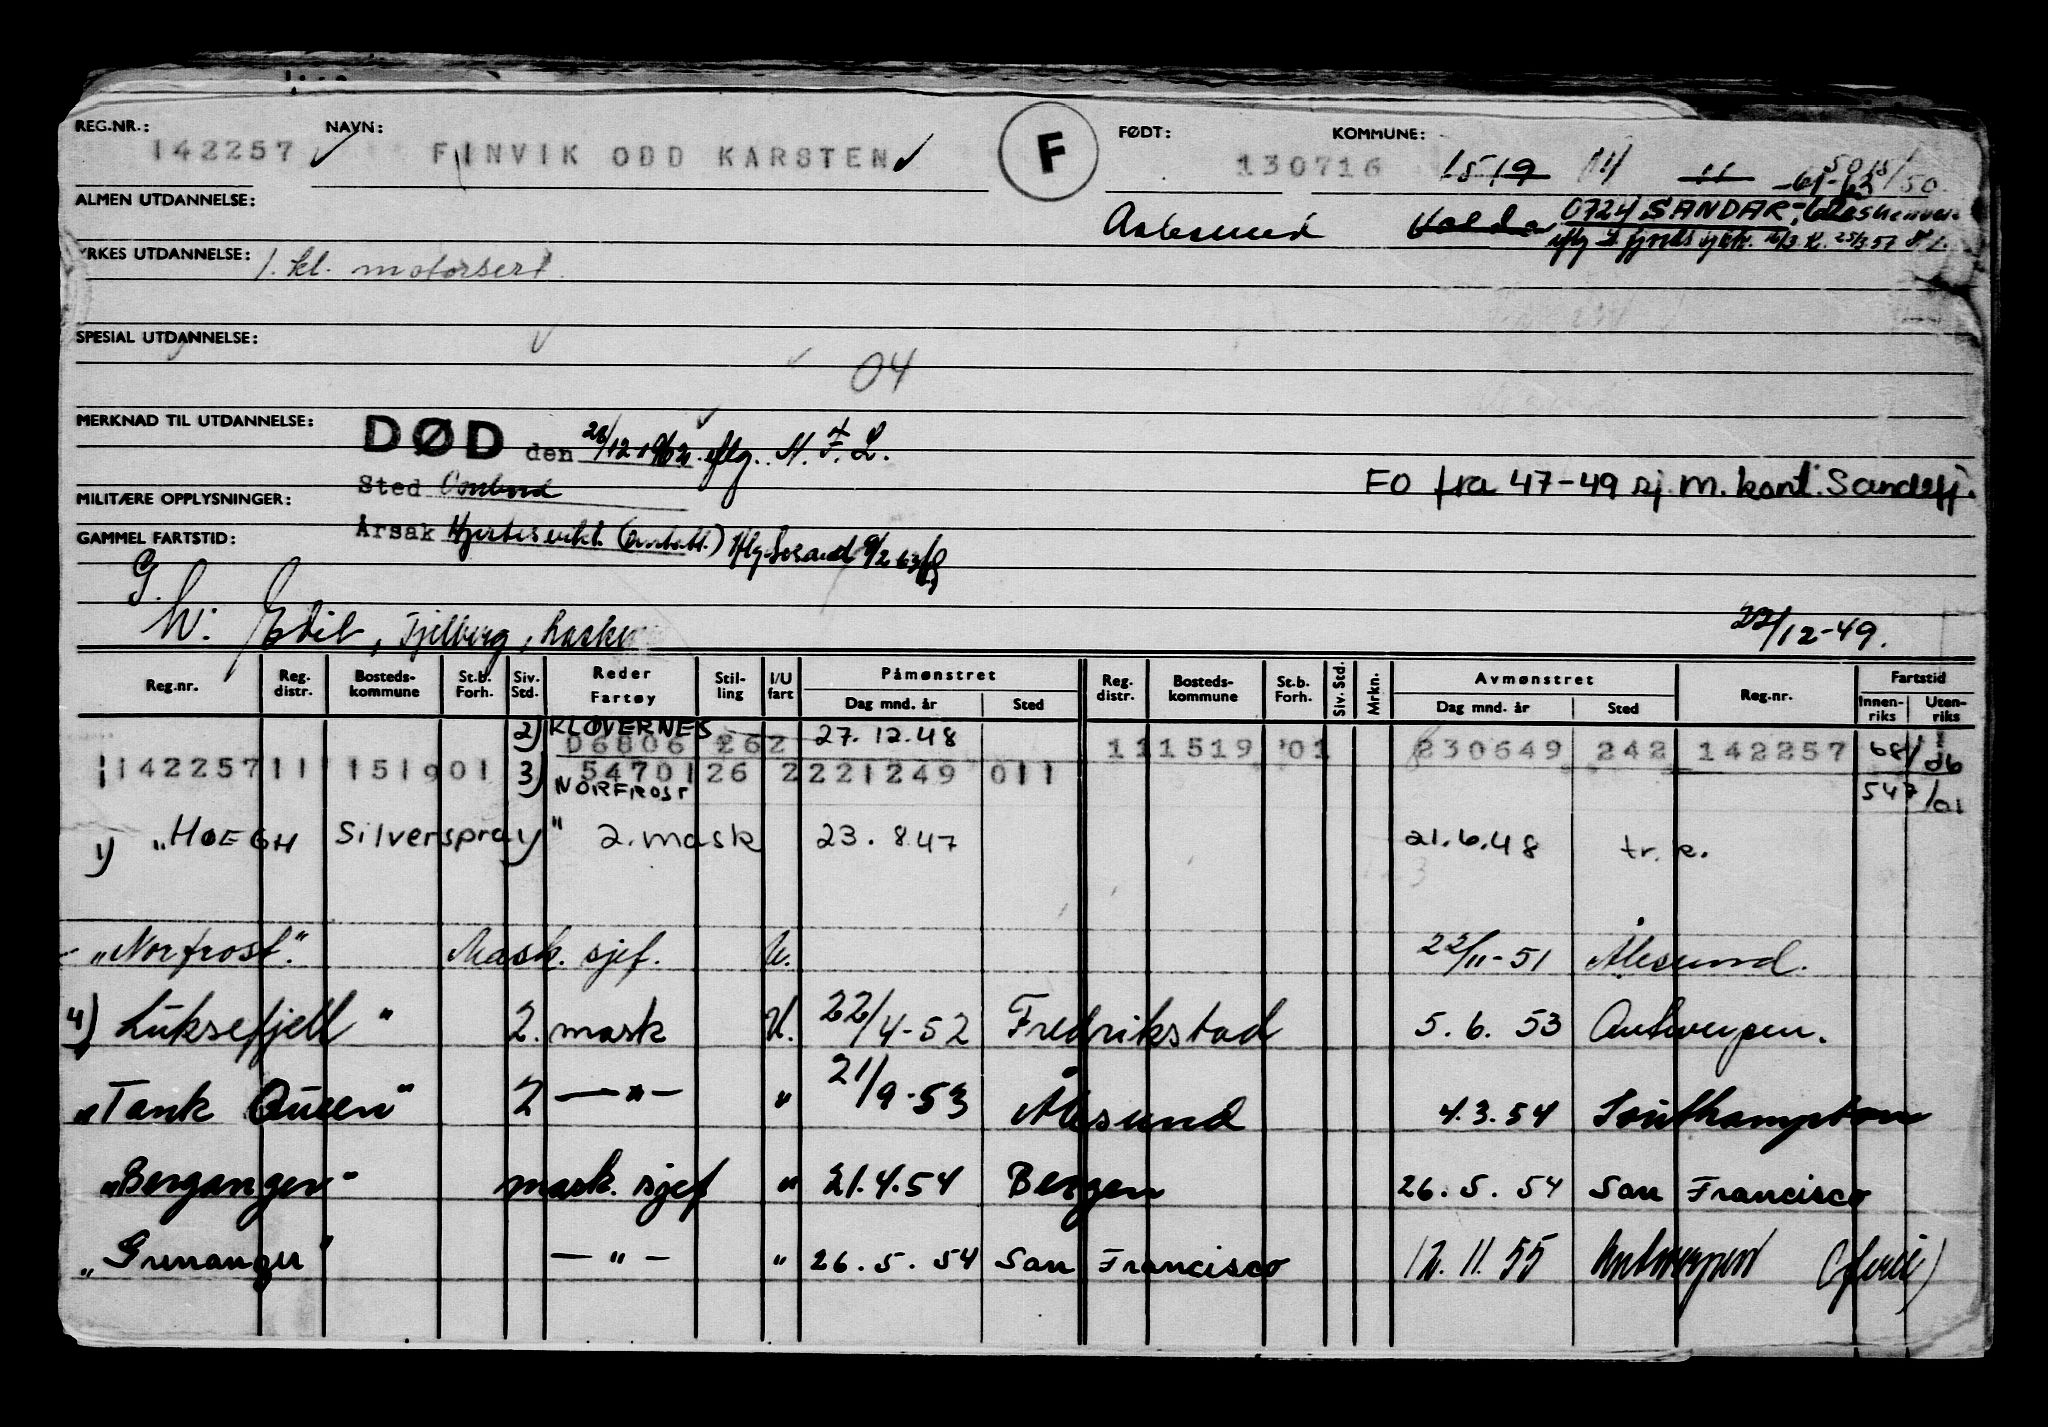 REG.NR.: NAVN: F FØDT: KOMMUNE:
142257 FINVIK ODD KARSTEN 130716 1519 11 61-63 50
ALMEN UTDANNELSE:
Aalesund Volda 0724 SANDAR
YRKES UTDANNELSE: 1. kl. motorsert.
SPESIAL UTDANNELSE:
04
MERKNAD TIL UTDANNELSE:
DØD den 28/12 1962 iflg. M.F.L.
EO fra 47-49 sj. m. kont. Sandefj.
MILITÆRE OPPLYSNINGER: Sted Ombord
GAMMEL FARTSTID: Årsak Hjertesvikt
G.
W. Edil, Fjelberg, 22/12-49.
Reg.nr. Reg. distr. Bosteds- kommune St.b. Forh. Siv. Std. Reder Fartøy Stil- ling I/U fart Påmønstret Dag mnd. år Sted Reg. distr. Bosteds- kommune St.b. Forh. Siv. Std. Mrkn. Avmønstret Dag mnd. år Sted Reg.nr. Fartstid Innen- riks Uten- riks
2) KLØVERNES 27.12.48
06806 262 111519 01 230649 242 142257 68/06
142257 11 1519 01 3) 54701 26 2 221249 011
NORFROST 547/01
1) "HOEGH Silverspray" 2. mask 23. 8 47 21.6.48 tr. k.
- "Norfrost". Mask. sjef. U. 22/11-51 Ålesund.
4) Luksefjell " 2. mask U. 22/4-52 Fredrikstad 5. 6. 53 Antwerpen.
"Tank Queen" 2 — " — " 21/9-53 Ålesund 4.3.54 Southampton
"Berganger" mask. sjef " 21.4.54 Bergen 26. 5. 54 San Francisco
"Grenanger" — " — " 26. 5. 54 San Francisco 12.11.55 Antwerpen (ferie)